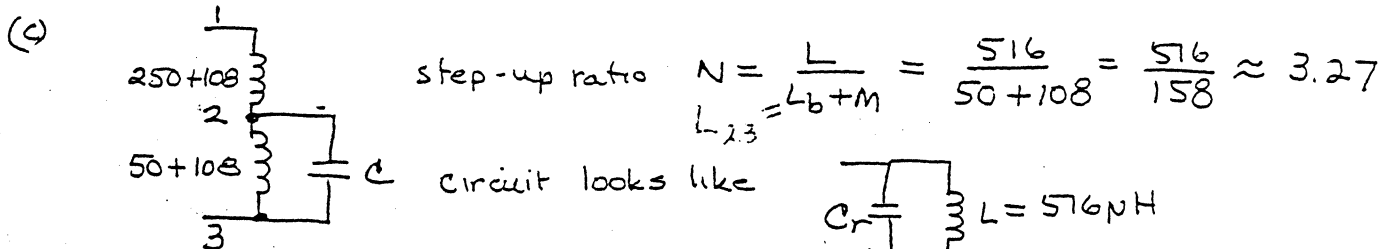 (c)
1
250+108
2
50+108
3
C
step-up ratio N = L / (Lb+M) = 516 / (50+108) = 516 / 158 ≈ 3.27
L23 =
circuit looks like
Cr
L = 516 μH